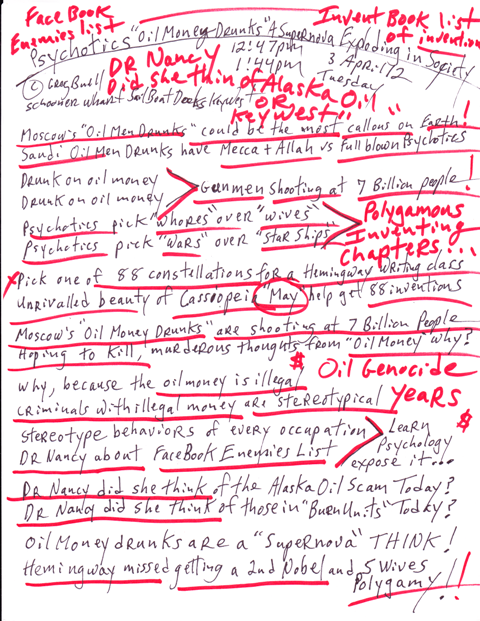 FaceBook Enemies list
Invent Book list of inventions
Psychotics "Oil Money Drunks" A Supernova Exploding in Society
12:47pm
1:44pm
3 April 12
Tuesday
© Greg Buell
schooner wharf SailBoat Docks Key West
DR Nancy
Did she thin of Alaska Oil
OR
Key West"
Moscow's "Oil Men Drunks" could be the most callous on Earth!
Saudi Oil Men Drunks have Mecca + Allah vs Full blown Psychotics
Drunk on oil money
Drunk on oil money
Gunmen shooting at 7 Billion people!
Psychotics pick "whores" over "wives"
Psychotics pick "wars" over "Star Ships"
Polygamous
Inventing
Chapters...
Pick one of 88 constellations for a Hemingway writing class
Unrivalled beauty of Cassiopeia "May" help get 88 inventions
Moscow's "Oil Money Drunks" are shooting at 7 Billion People
Hoping to kill, murderous thoughts from "Oil Money" why?
why, because the oil money is illegal
$ Oil Genocide
years
criminals with illegal money are stereotypical
Stereotype behaviors of every occupation
DR Nancy about FaceBook Enemies List
Learn
Psychology
expose it...
$
DR Nancy did she think of the Alaska Oil Scam Today?
DR Nancy did she think of those in "Burn Units" Today?
Oil Money drunks are a "Supernova" THINK!
Hemingway missed getting a 2nd Nobel and 5 Wives
Polygamy!!